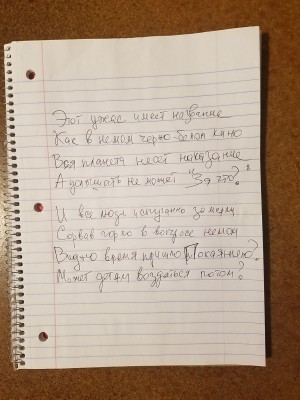 Этот ужас имеет название
Как в немом черно-белом кино
Вся планета несёт наказание
А услышать не может "За что?"
И все люди испуганно замерли
Сорвав горло в вопросе немом
Видно время пришло Покаянию?
Может детям воздаться потом?